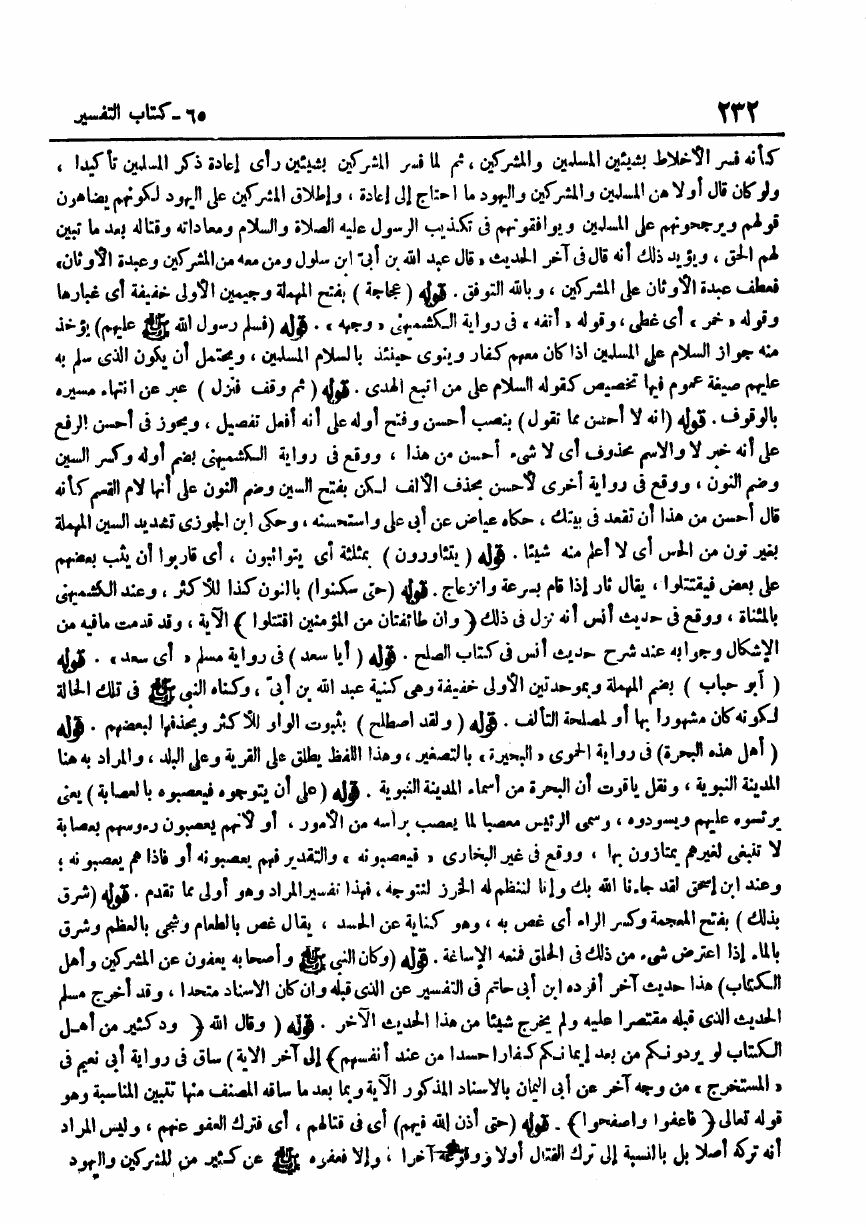 ٢٣٢
٦٥ - كتاب التفسير
كأنه فسر الأخلاط بشيئين المسلمين والمشركين ، ثم لما فسر المشركين بشيئين رأى إعادة ذكر المسلمين تأكيدا ،
ولو كان قال أولا من المسلمين والمشركين واليهود ما احتاج إلى إعادة ، وإطلاق المشركين على اليهود لكونهم يضاهون
قولهم ويرجحونهم على المسلمين ويوافقونهم فى تكذيب الرسول عليه الصلاة والسلام ومعاداته وقتاله بعد ما تبين
لهم الحق ، ويؤيد ذلك أنه قال فى آخر الحديث « قال عبد الله بن أبىّ ابن سلول ومن معه من المشركين وعبدة الأوثان»
فعطف عبدة الأوثان على المشركين ، وبالله التوفق . قوله ( عجاجة ) بفتح المهملة وجيمين الأولى خفيفة أى غبارها
وقوله « خمر » أى غطى ، وقوله « أنفه » فى رواية الكشميهنى « وجهه » . قوله (فسلم رسول الله ﷺ عليهم) يؤخذ
منه جواز السلام على المسلمين اذا كان معهم كفار وينوى حينئذ بالسلام المسلمين ، ويحتمل أن يكون الذى سلم به
عليهم صيغة عموم فيها تخصيص كقوله السلام على من اتبع الهدى . قوله ( ثم وقف فنزل ) عبر عن انتهاء مسيره
بالوقوف . قوله (انه لا أحسن مما تقول) بنصب أحسن وفتح أوله على أنه أفعل تفضيل ، ويجوز فى أحسن الرفع
على أنه خبر لا والاسم محذوف أى لا شىء أحسن من هذا ، ووقع فى رواية الكشميهنى بضم أوله وكسر السين
وضم النون ، ووقع فى رواية أخرى لأحسن بحذف الألف لكن بفتح السين وضم النون على أنها لام القسم كأنه
قال أحسن من هذا أن تقعد فى بيتك ، حكاه عياض عن أبى على واستحسنه ، وحكى ابن الجوزى تشديد السين المهملة
بغير نون من الحس أى لا أعلم منه شيئا . قوله ( يتثاورون ) بمثلثة أى يتواثبون ، أى قاربوا أن يثب بعضهم
على بعض فيقتتلوا ، يقال ثار إذا قام بسرعة وانزعاج . قوله (حتى سكنوا) بالنون كذا للأكثر ، وعند الكشميهنى
بالمثناة ، ووقع فى حديث أنس أنه نزل فى ذلك ﴿ وان طائفتان من المؤمنين اقتتلوا ﴾ الآية ، وقد قدمت مافيه من
الإشكال وجوابه عند شرح حديث أنس فى كتاب الصلح . قوله ( أيا سعد ) فى رواية مسلم « أى سعد » . قوله
( أبو حباب ) بضم المهملة وبموحدتين الأولى خفيفة وهى كنية عبد الله بن أبىّ ، وكناه النبى ﷺ فى تلك الحالة
لكونه كان مشهورا بها أو لمصلحة التألف . قوله ( ولقد اصطلح ) بثبوت الواو للأكثر وبحذفها لبعضهم . قوله
( أهل هذه البحرة) فى رواية الحموى « البحيرة » بالتصغير ، وهذا اللفظ يطلق على القرية وعلى البلد ، والمراد به هنا
المدينة النبوية ، ونقل ياقوت أن البحرة من أسماء المدينة النبوية . قوله (على أن يتوجوه فيعصبوه بالعصابة ) يعنى
يرئسوه عليهم ويسودوه ، وسمى الرئيس معصبا لما يعصب برأسه من الأمور ، أو لأنهم يعصبون رءوسهم بعصابة
لا تنبغى لغيرهم يمتازون بها ، ووقع فى غير البخارى « فيعصبونه » والتقدير فهم يعصبونه أو فاذا هم يعصبونه ؛
وعند ابن إسحق لقد جاءنا الله بك وإنا لننظم له الخرز لنتوجه ، فهذا تفسير المراد وهو أولى مما تقدم . قوله (شرق
بذلك ) بفتح المعجمة وكسر الراء أى غص به ، وهو كناية عن الحسد ، يقال غص بالطعام وشجى بالعظم وشرق
بالماء إذا اعترض شىء من ذلك فى الحلق فمنعه الإساغة . قوله (وكان النبى ﷺ وأصحابه يعفون عن المشركين وأهل
الكتاب) هذا حديث آخر أفرده ابن أبى حاتم فى التفسير عن الذى قبله وان كان الاسناد متحدا ، وقد أخرج مسلم
الحديث الذى قبله مقتصرا عليه ولم يخرج شيئا من هذا الحديث الآخر . قوله ( وقال الله ﴿ ود كثير من أهل
الكتاب لو يردونكم من بعد إيمانكم كفارا حسدا من عند أنفسهم﴾ إلى آخر الاية) ساق فى رواية أبى نعيم فى
« المستخرج » من وجه آخر عن أبى اليمان بالاسناد المذكور الآية وبما بعد ما ساقه المصنف منها تتبين المناسبة وهو
قوله تعالى ﴿ فاعفوا واصفحوا ﴾ . قوله (حتى أذن الله فيهم) أى فى قتالهم ، أى فترك العفو عنهم ، وليس المراد
أنه تركه أصلا بل بالنسبة إلى ترك القتال أولا ووقوعه آخرا ، وإلا فعفوه ﷺ عن كثير من المشركين واليهود